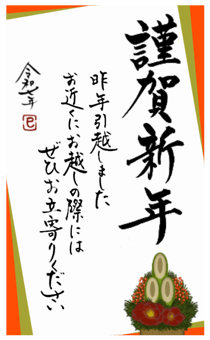 謹賀新年
昨年引越しました
お近くにお越しの際には
ぜひお立寄りください
令和七年
巳